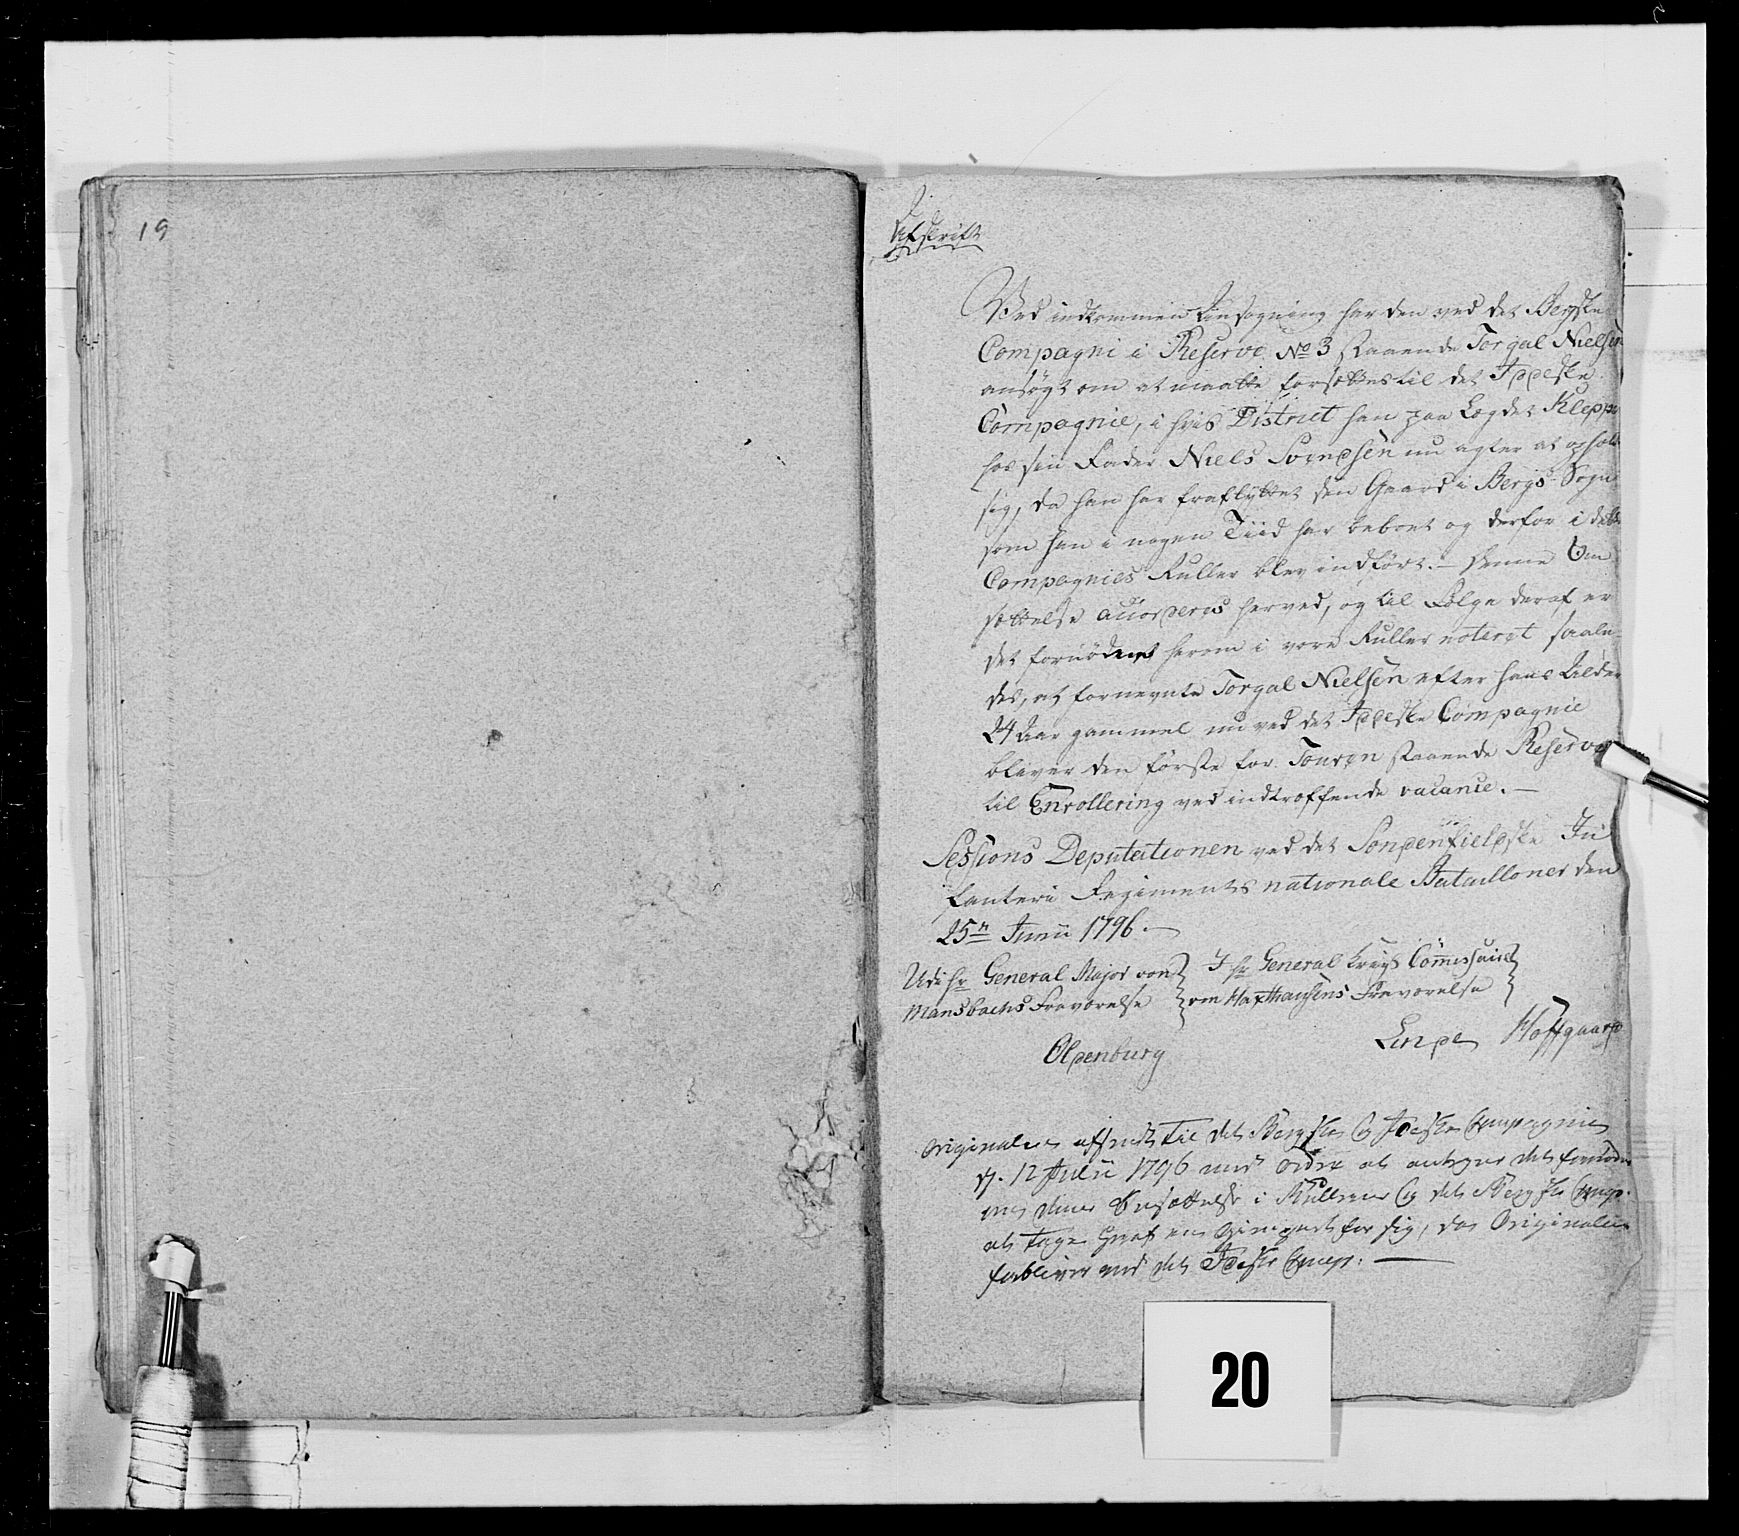 19
Afskrift
Ved indkommen Ansøgning har den ved det Bergske
Compagni i Reserve No 3 staaende Torgal Nielsen
ansøgt om at maatte forsættes til det Iddeske
Compagnie, i hvis District han paa Lægdet Kleppe
hos sin Fader Niels Svendsen nu agter at ophold
sig, da han har fraflyttet den Gaard i Bergs Sogn
som han i nogen Tiid har beboet og derfor i dette
Compagnies Ruller blev indført. – denne Om
sættelse accorderes herved, og til Følge deraf er
det fornødne herom i vore Ruller noteret saale
des, at fornevnte Torgal Nielsen efter hans Alder
24 Aar gammel nu ved det Iddeske Compagnie
bliver den første for Touren staaende Reserve
til Enrollering ved indtreffende vacance. –
Sessions Deputationen ved det Søndenfieldske In
fanteri Regiments nationale Batailloner den
25n Junii 1796. –
Udi hr General Major von
Mansbachs Fraværelse
I hr General Krigs Commissaire
von Haxthausens Fraværelse
Oldenburg
Linde Hoffgaard
Originalen afsendt til det Bergske og Iddeske Compagnie
d. 12 Julii 1796 med Ordre at antegne det fornød
ne denne Omsættelse i Rullerne og det Bergske Comp.
at tage heraf en Gienpart for sig, da Originalen
forbliver ved det Iddeske Comp: –
20